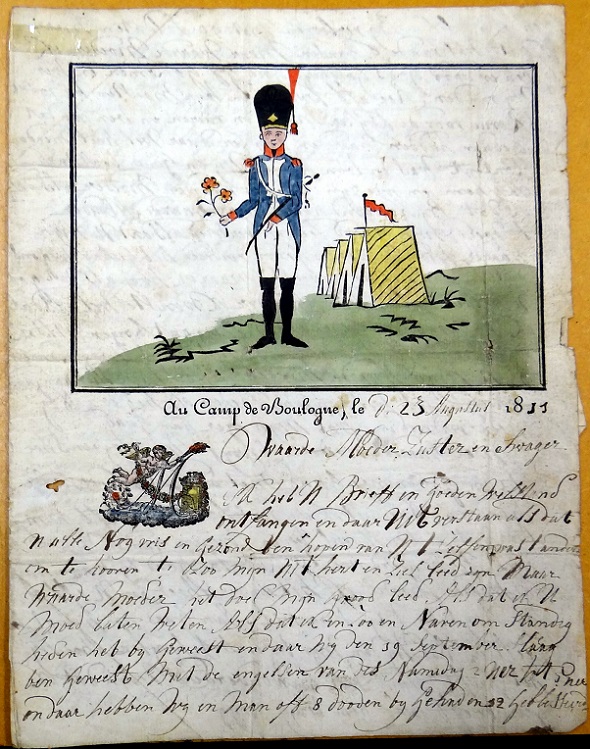 Au Camp de Boulogne, le D: 23 Augustus 1811
Waarde Moeder Zuster en Swager
Ik heb U Brieff in goeden welstand
ontfangen en daar uit verstaan als dat
nog vris en gezond ben hopen van U
om te hooren Zoo mijn hert en Ziel leed zijn Maar
Waarde Moeder het doet mijn groot leed Als dat ik U
Moed laten weten Als dat ik in zoo en Naren om standig
heden heb by geweest en daar wy den 19 September slaag
ben geweest Met de engelsen van des Namidag 2 uer tot 5 uer
en daar hebben wy en Man off 8 dooden by gehad en 12